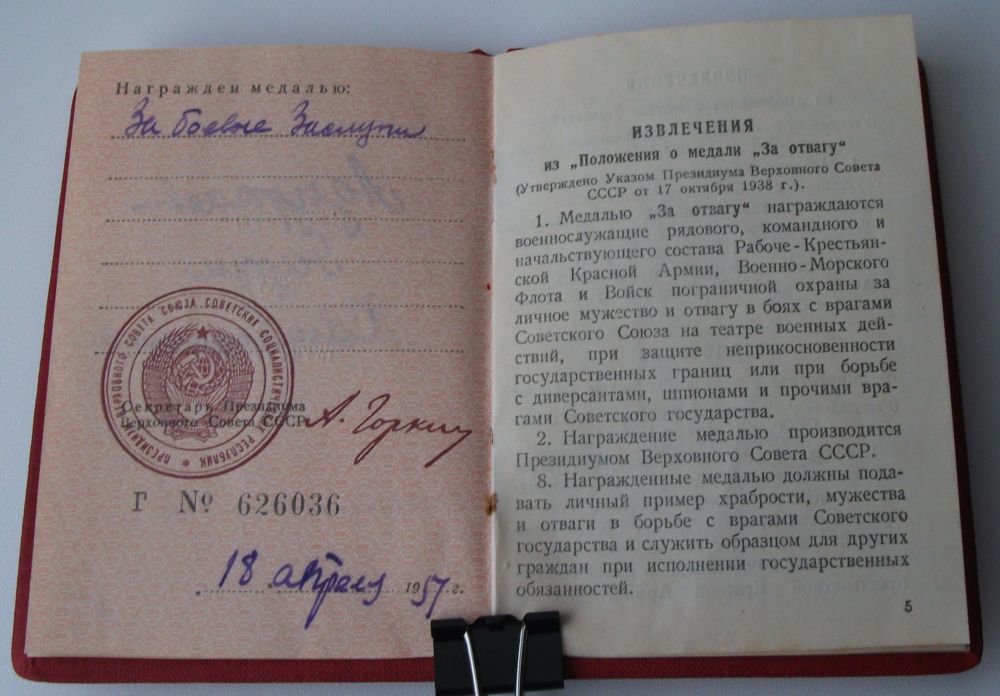 Награжден медалью:
За боевые Заслуги
ПРЕЗИДИУМ ВЕРХОВНОГО СОВЕТА СОЮЗА СОВЕТСКИХ СОЦИАЛИСТИЧЕСКИХ РЕСПУБЛИК
Секретарь Президиума
Верховного Совета СССР
А. Горкин
Г № 626036
18 апреля 1957 г.
ИЗВЛЕЧЕНИЯ
из „Положения о медали „За отвагу“
(Утверждено Указом Президиума Верховного Совета
СССР от 17 октября 1938 г.).
1. Медалью „За отвагу“ награждаются
военнослужащие рядового, командного и
начальствующего состава Рабоче-Крестьян-
ской Красной Армии, Военно-Морского
Флота и Войск пограничной охраны за
личное мужество и отвагу в боях с врагами
Советского Союза на театре военных дей-
ствий, при защите неприкосновенности
государственных границ или при борьбе
с диверсантами, шпионами и прочими вра-
гами Советского государства.
2. Награждение медалью производится
Президиумом Верховного Совета СССР.
8. Награжденные медалью должны пода-
вать личный пример храбрости, мужества
и отваги в борьбе с врагами Советского
государства и служить образцом для других
граждан при исполнении государственных
обязанностей.
5